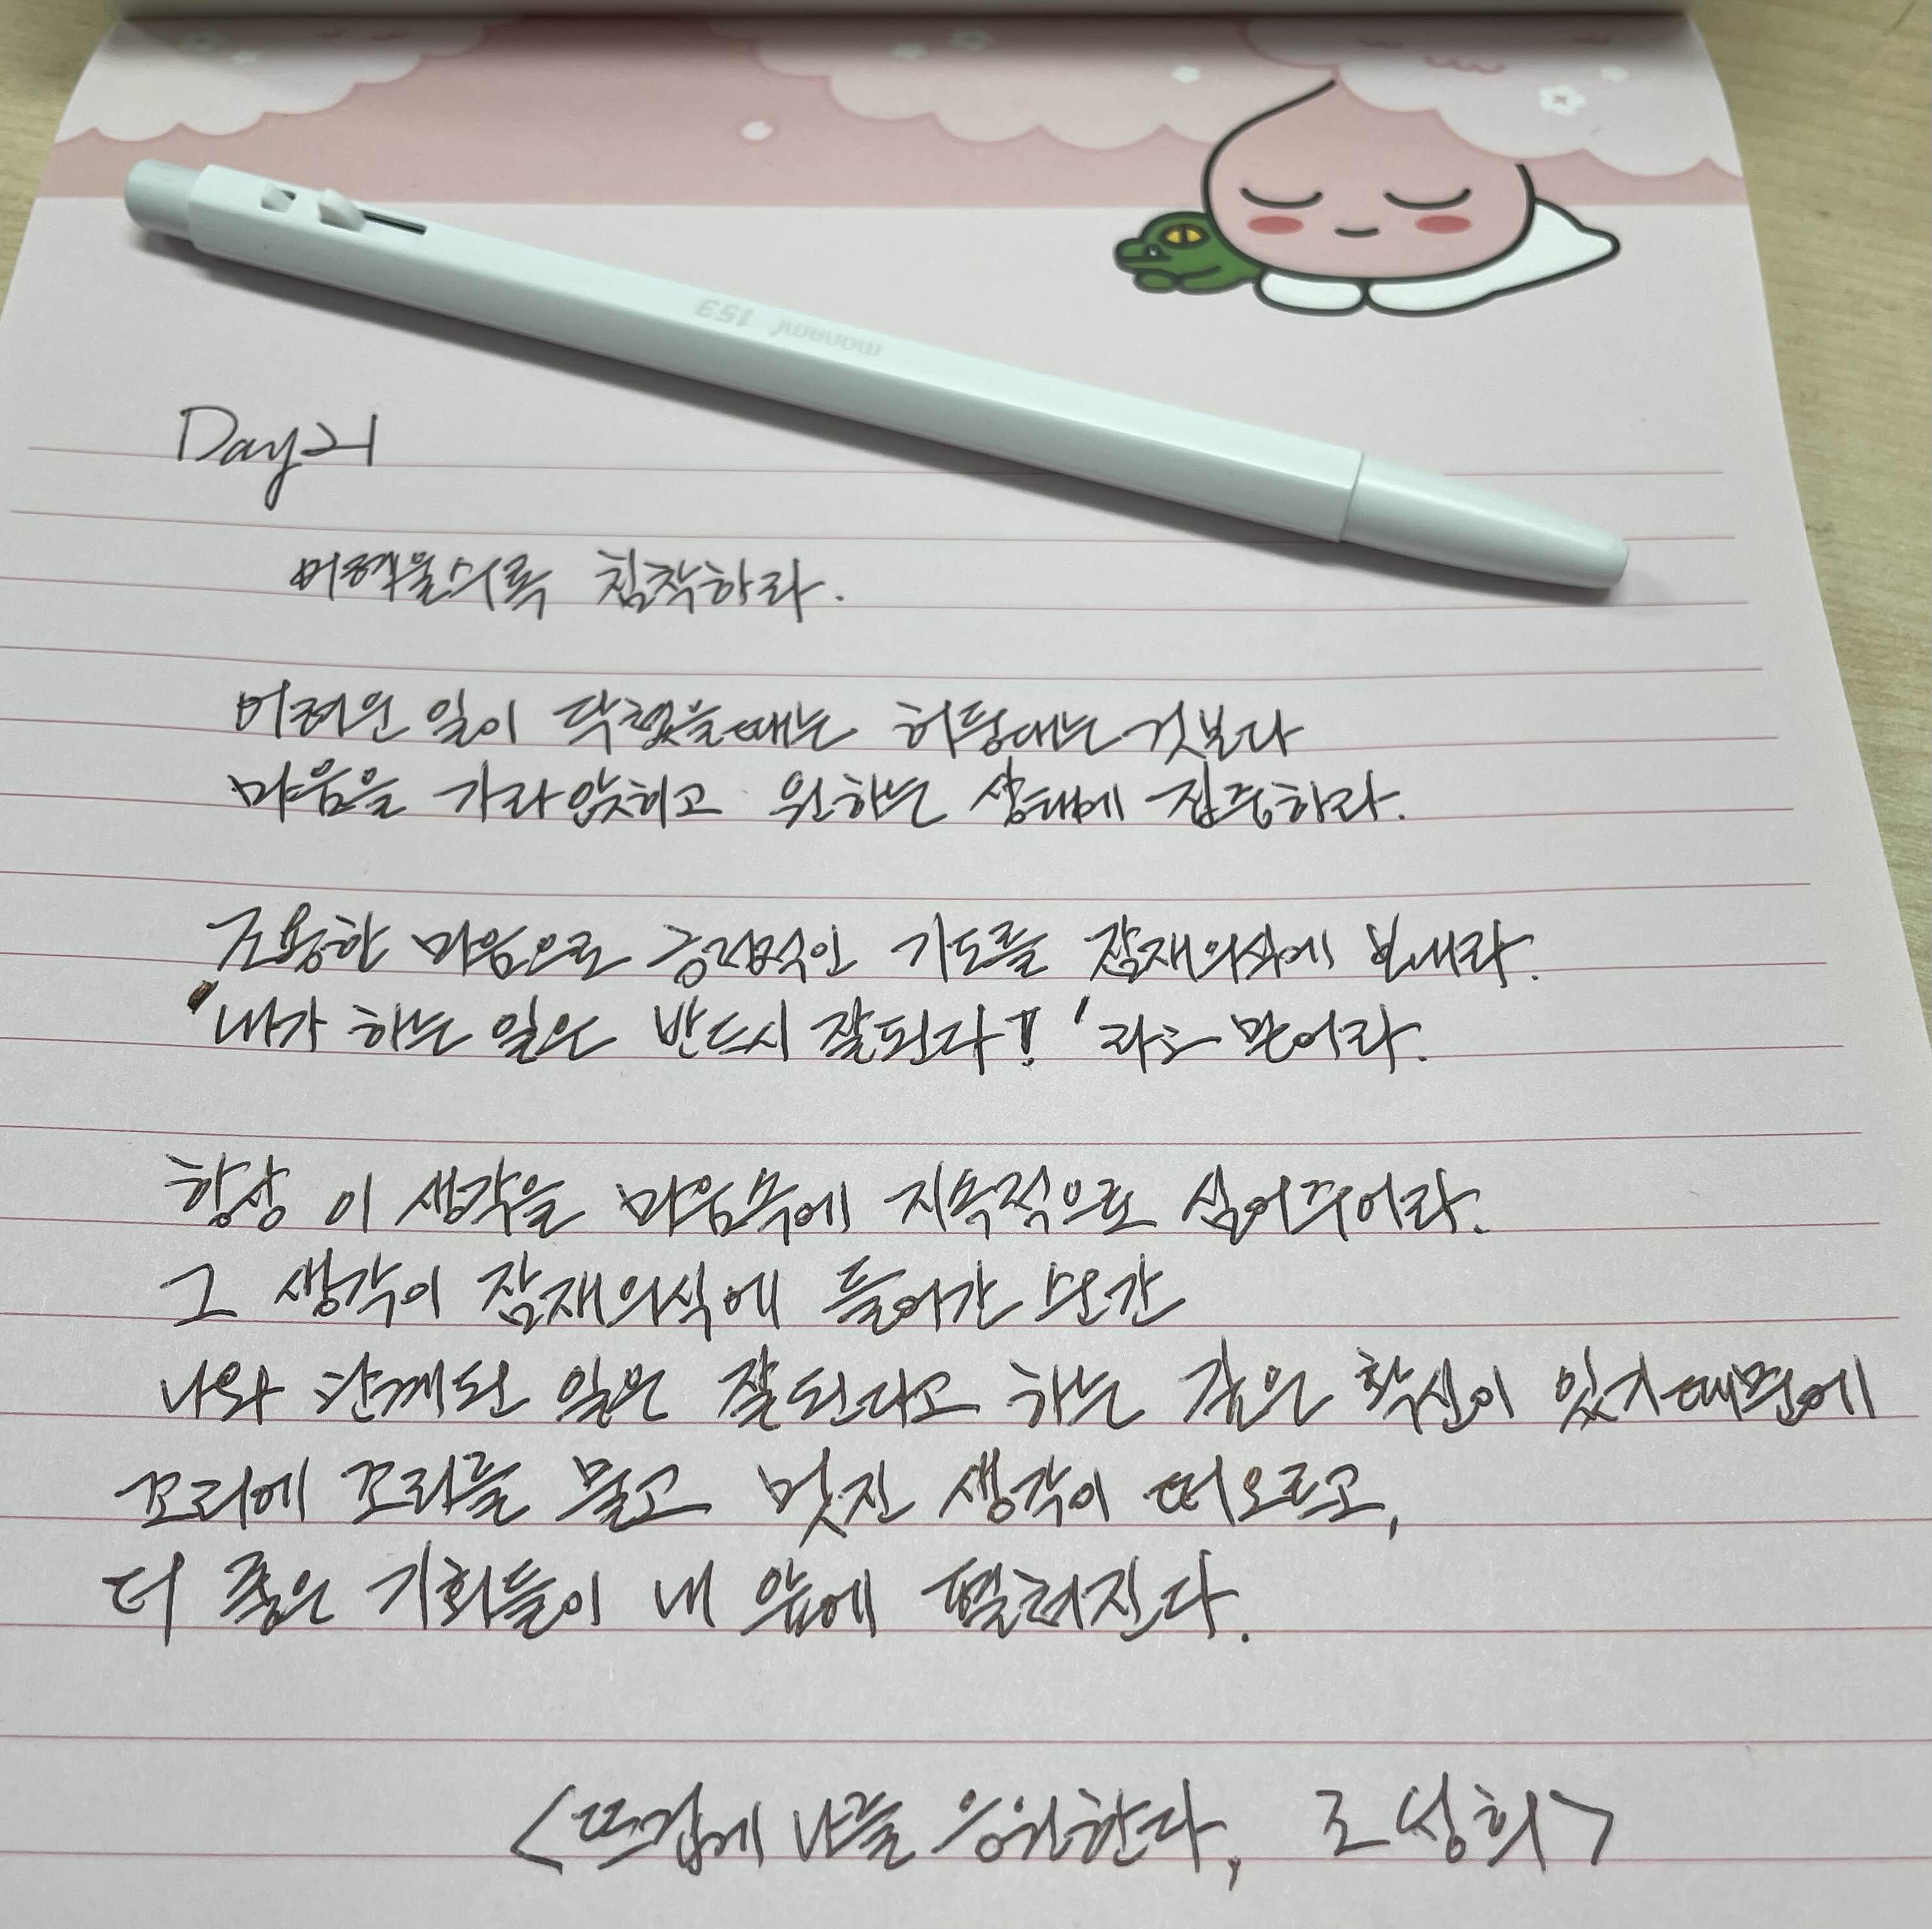 monami 153
Day 21
어려울수록 침착하라.
어려운 일이 닥쳤을때는 허둥대는 것보다
마음을 가라앉히고 원하는 상태에 집중하라.
조용한 마음으로 긍정적인 기도를 잠재의식에 보내라.
'내가 하는 일은 반드시 잘된다!' 라고 믿어라.
항상 이 생각을 마음속에 지속적으로 심어주어라.
그 생각이 잠재의식에 들어간 순간
나와 관계된 일은 잘된다고 하는 깊은 확신이 있기때문에
꼬리에 꼬리를 물고 멋진 생각이 떠오르고,
더 좋은 기회들이 내 앞에 펼쳐진다.
<뜨겁게 나를 응원한다, 조성희>